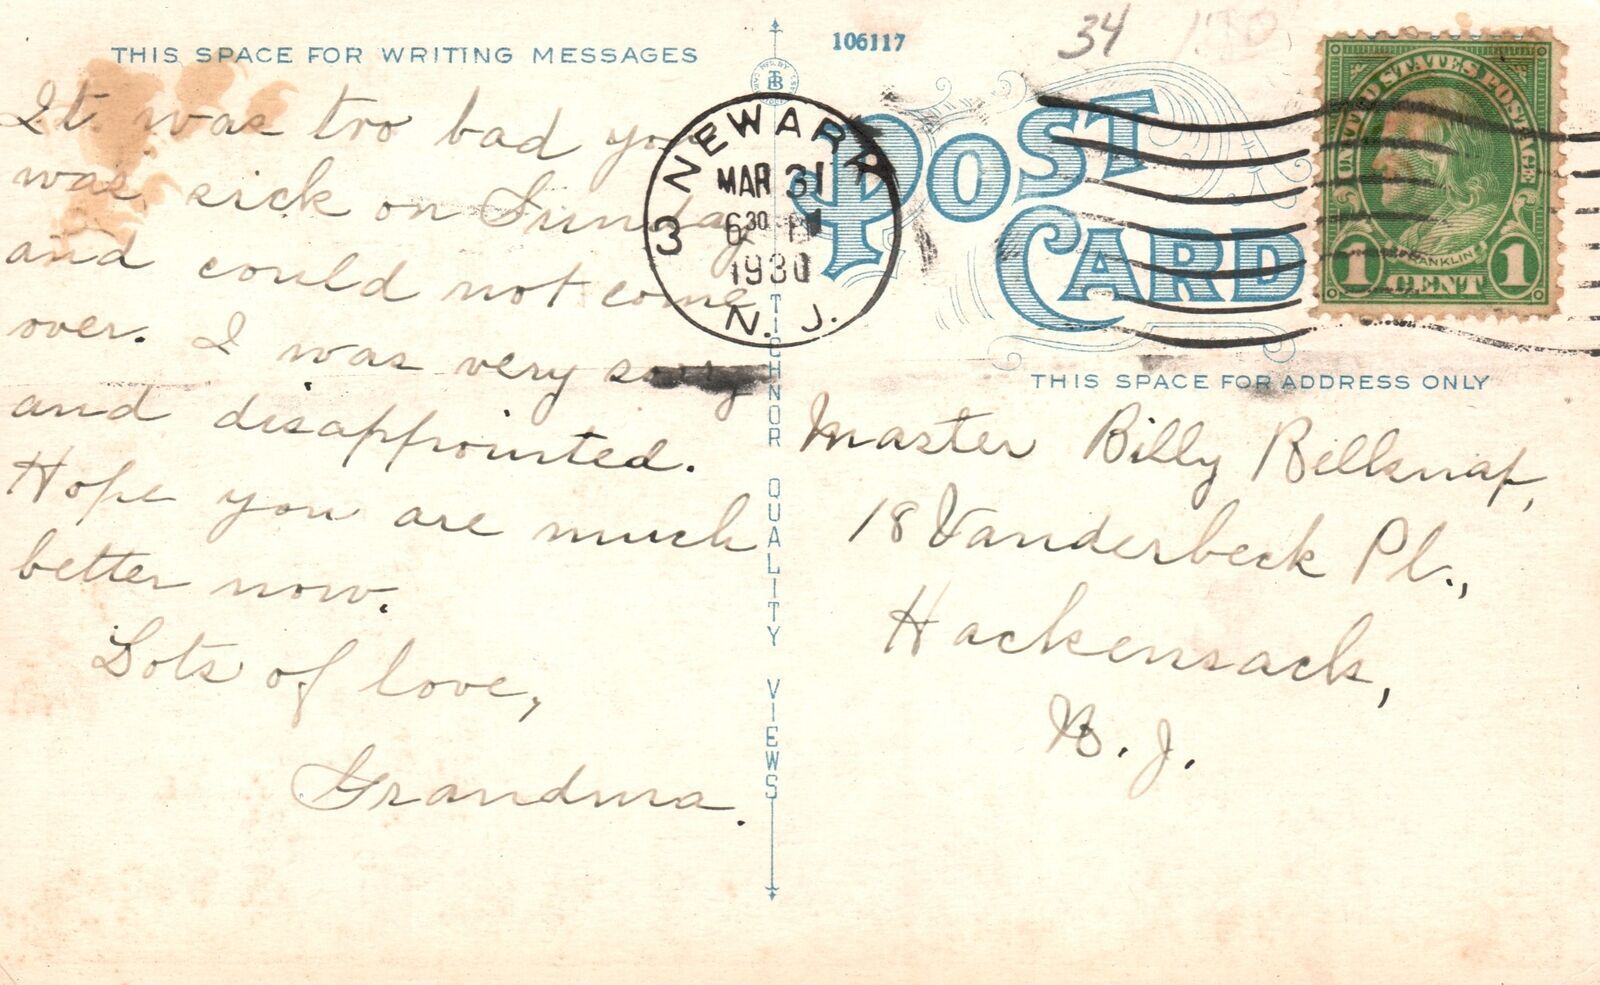 THIS SPACE FOR WRITING MESSAGES
It was too bad you
was sick on Sunday
and could not come
over. I was very sorry
and disappointed.
Hope you are much
better now.
Lots of love,
Grandma.
TICHNOR QUALITY VIEWS
106117
34
NEWARK
3
MAR 31
6 30 PM
1930
N. J.
POST
CARD
UNITED STATES POSTAGE
FRANKLIN
1 CENT 1
THIS SPACE FOR ADDRESS ONLY
Master Billy Bellknap,
18 Vanderbeck Pl.,
Hackensack,
N. J.